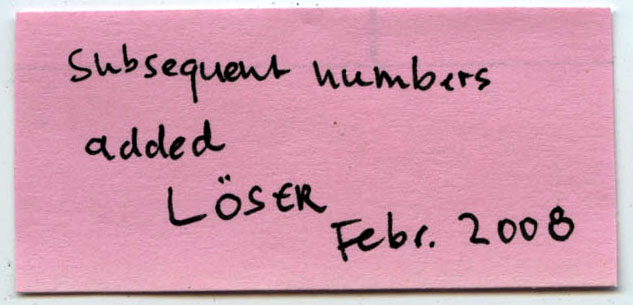 Subsequent numbers
added
LÖSER
Febr. 2008